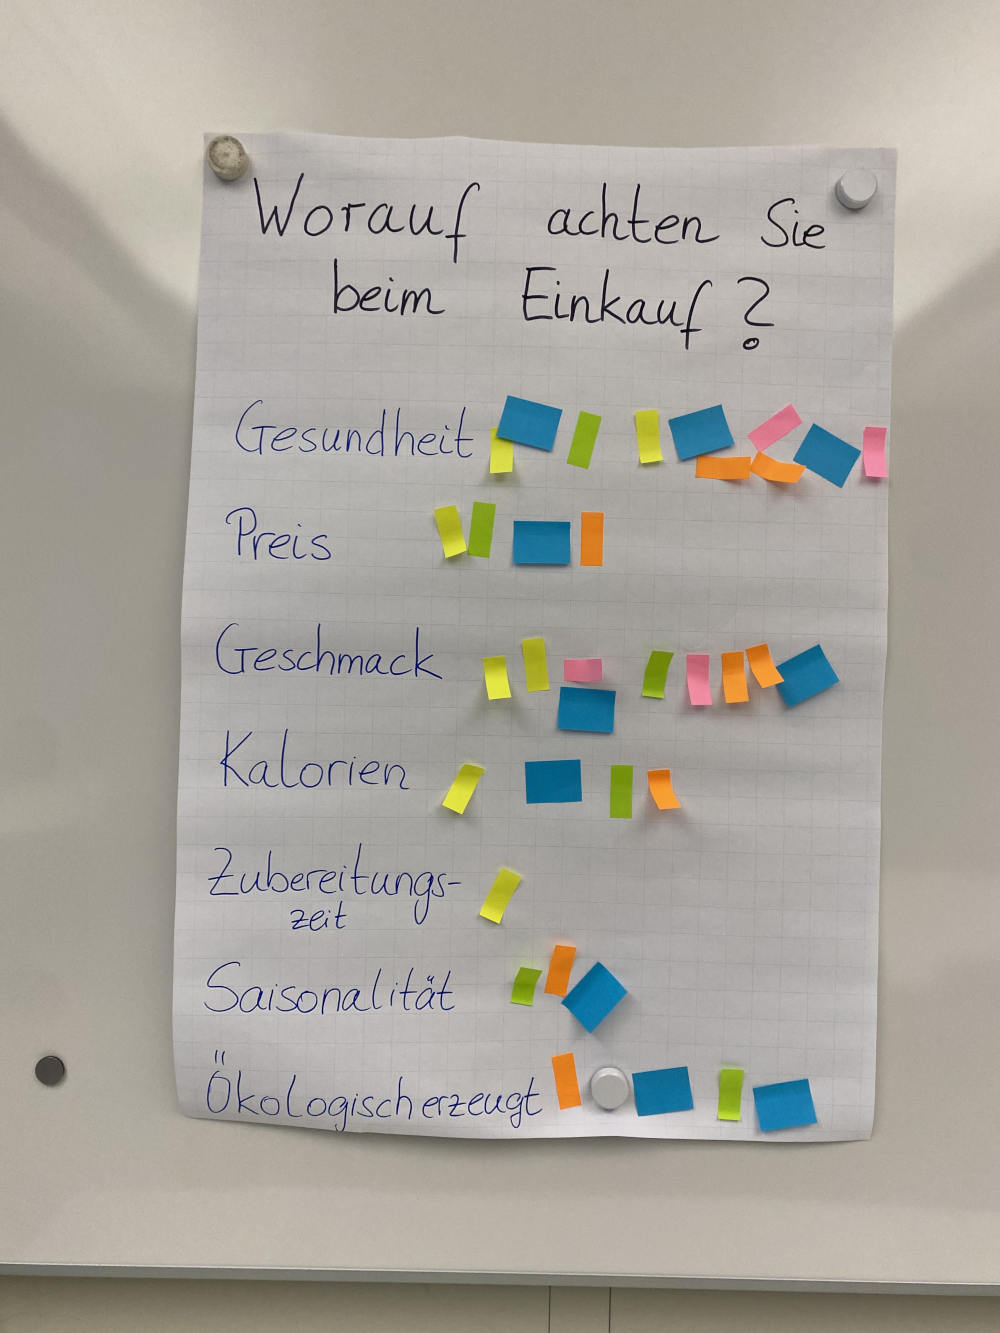 Worauf achten Sie
beim Einkauf?
Gesundheit
Preis
Geschmack
Kalorien
Zubereitungs-
zeit
Saisonalität
Ökologisch erzeugt